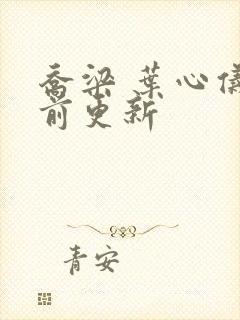 乔梁 葉心儀
前更新
青安